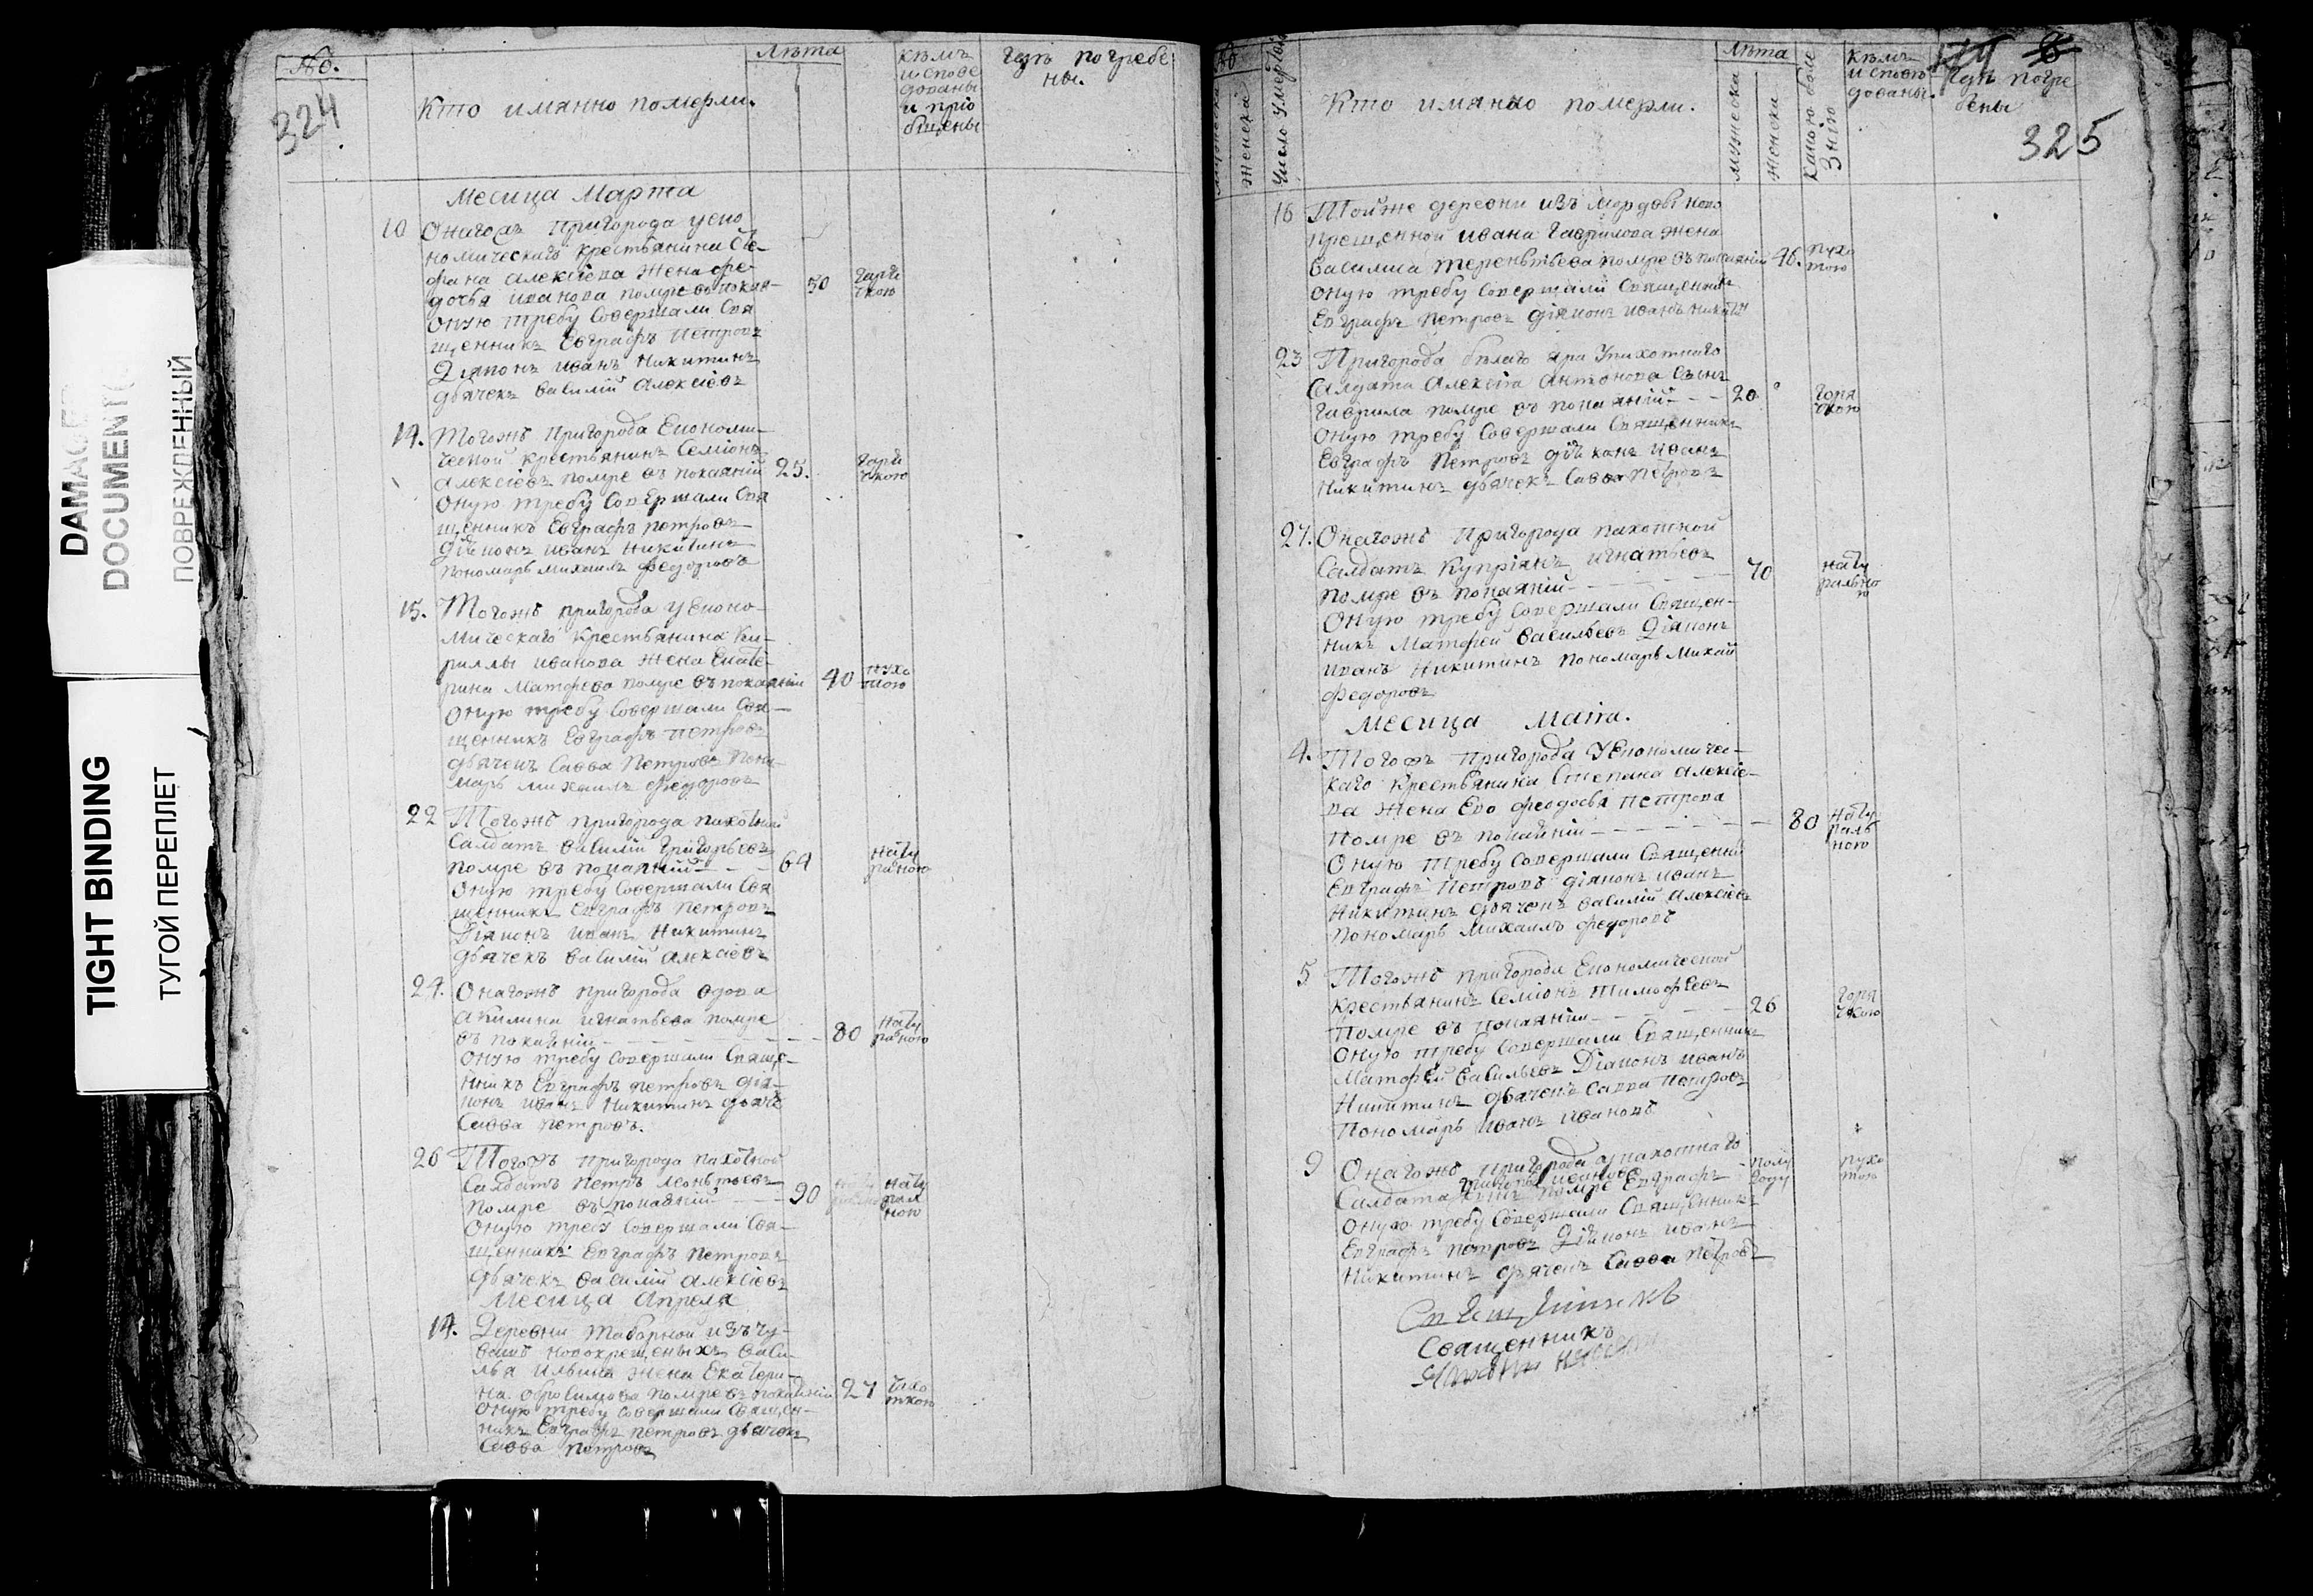 DAMAGED
DOCUMENT
ПОВРЕЖДЕННЫЙ
TIGHT BINDING
ТУГОЙ ПЕРЕПЛЕТ
No.
324
Кто имянно померли.
Лѣта
кѣмъ
испове
дованы
и прiо
бщены
Гдѣ погребе
ны.
Месица Марта
10 Онагожъ Пригорода уено
номическагѡ крестьянина Сте-
фана Алексiева жена фе-
досья иванова помре въ покая- 50 гаря
чкою
Оную требу Совершали Свя
щенникъ Евграфъ Петровъ
Дiяконъ иванъ Никитинъ
дьячекъ василiй Алексiевъ
14. Тогожъ Пригорода Економи-
ческой крестьянинъ Семiонъ
Алексiевъ помре въ покаянiй 25. гаря
чкою
Оную требу Совершали Свя
щенникъ Евграфъ петровъ
дiяконъ иванъ Никитинъ
пономарь михаилъ федоровъ
15. Тогожъ пригорода уЕконо-
мическаго крестьянина Ки-
риллы иванова жена Екате-
рина Матфеева помре въ покаянiи 40 пухо
тою
Оную требу Совершали Свя-
щенникъ Евграфъ петровъ
дьячекъ Савва Петровъ Поно-
марь михаилъ федоровъ
22 Тогожъ пригорода пахотной
Салдатъ василiй григорьевъ
помре въ покаянiй - - - 64 нату
ралною
Оную требу Совершали Свя
щенникъ Евграфъ Петровъ
Дiяконъ иванъ Никитинъ
дьячекъ василiй алексiевъ
24. Онагожъ пригорода вдова
акилина игнатьева помре
въ покаянiи - - - 80 нату
ралною
Оную требу Совершали Свяще-
нникъ Евграфъ петровъ дiя-
конъ иванъ Никитинъ дьячекъ
Савва петровъ.
26 Тогожъ пригорода пахотной
Салдатъ петръ леонтьевъ
помре въ покаянiй - - - 90 нату
рал
ною
Оную требу Совершали Свя-
щенникъ Евграфъ Петровъ
дьячекъ василiй алексiевъ
Месица Апреля
14. Деревни Таборной изъ чу-
вашъ новокрещеныхъ васи-
лья ильина жена Екатери-
на помре въ покаянiи 27 чихо
ткою
Оную требу Совершали Священ-
никъ Евграфъ петровъ дьячекъ
Савва петровъ
No
мужеска
женска
Число умершихъ
Кто имянно померли.
Лѣта
мужеска
женска
Какою боле
знiю
кѣмъ
исповѣ
дованы.
174
Гдѣ погре
бены
325
16 Тойже деревни изъ мордвы ново
крещенной ивана гаврилова жена
василиса терентьева помре въ покаянiи 46. пухо
тою
Оную требу Совершали Священникъ
Евграфъ петровъ дiяконъ иванъ никитинъ
23 Пригорода бѣлаго яра упахотнаго
Салдата Алексiя Антонова Сынъ
гаврила помре въ покаянiй - - - 20 горя
чкою
Оную требу Совершали Священникъ
Евграфъ Петровъ дiяконъ иванъ
Никитинъ дьячекъ Савва Петровъ
27. Онагожъ Пригорода пахотной
Салдатъ Купрiянъ игнатьевъ 70 нату
рально
ю
помре въ покаянiй - - -
Оную требу Совершали Священ-
никъ Матфей васильевъ Дiяконъ
иванъ Никитинъ пономарь Михаи
федоровъ
Месица Маiя.
4. Тогожъ пригорода уЕкономичес-
каго крестьянина Степана алексiе-
ва жена Ево феодосья петрова
Помре въ покаянiи - - - 80 нату
раль
ною
Оную требу Совершали Священникъ
Евграфъ Петровъ дiяконъ иванъ
Никитинъ дьячекъ василiй алексiевъ
пономарь Михаилъ федоровъ
5 Тогожъ пригорода Економической
крестьянинъ Семiонъ Тимофеевъ 26 горя
чкою
Помре въ покаянiи - - -
Оную требу Совершали Священникъ
Матфей васильевъ Дiяконъ иванъ
Никитинъ дьячекъ Савва петровъ
Пономарь иванъ ивановъ
9 Онагожъ пригорода упахотнаго полу
году пухо
тою
Салдата Сынъ помре Евграфъ
Оную требу Совершали Священникъ
Евграфъ петровъ Дiяконъ иванъ
Никитинъ дьячекъ Савва петровъ
Священникъ